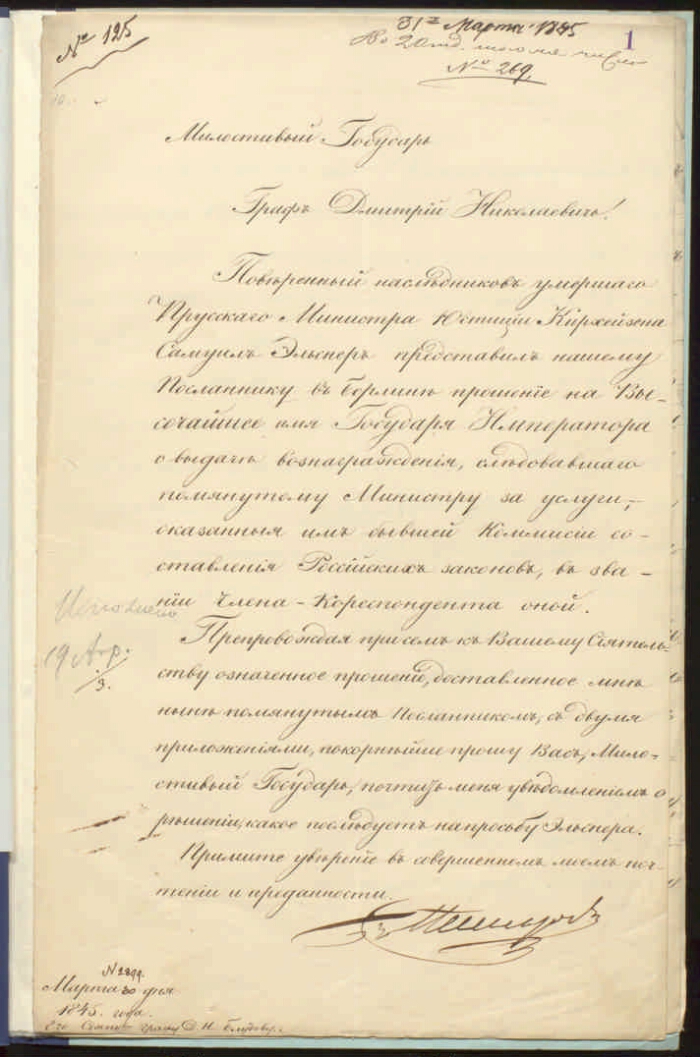 № 125
31го Марта 1845
1
№ 269.
Милостивый Государь
Графъ Дмитрій Николаевичь!
Повѣренный наслѣдниковъ умершаго
Прусскаго Министра Юстиціи Кирхейзена
Самуилъ Эльснеръ представилъ нашему
Посланнику въ Берлинѣ прошеніе на Вы-
сочайшее имя Государя Императора
о выдачѣ вознагражденія, слѣдовавшаго
помянутому Министру за услуги,
оказанныя имъ бывшей Коммисіи со-
ставленія Россійскихъ законовъ, въ зва-
ніи Члена-Кореспондента оной.
Исполнено
19 Апр.
Препровождая при семъ къ Вашему Сіятель-
ству означенное прошеніе, доставленное мнѣ
нынѣ помянутымъ Посланникомъ, съ двумя
приложеніями, покорнѣйше прошу Васъ, Мило-
стивый Государь, почтить меня увѣдомленіемъ о
рѣшеніи, какое послѣдуетъ на просьбу Эльснера.
Примите увѣреніе въ совершенномъ моемъ поч-
теніи и преданности.
Марта 30 дня
1845. года.
Его Сіят. графу Д. Н. Блудову.